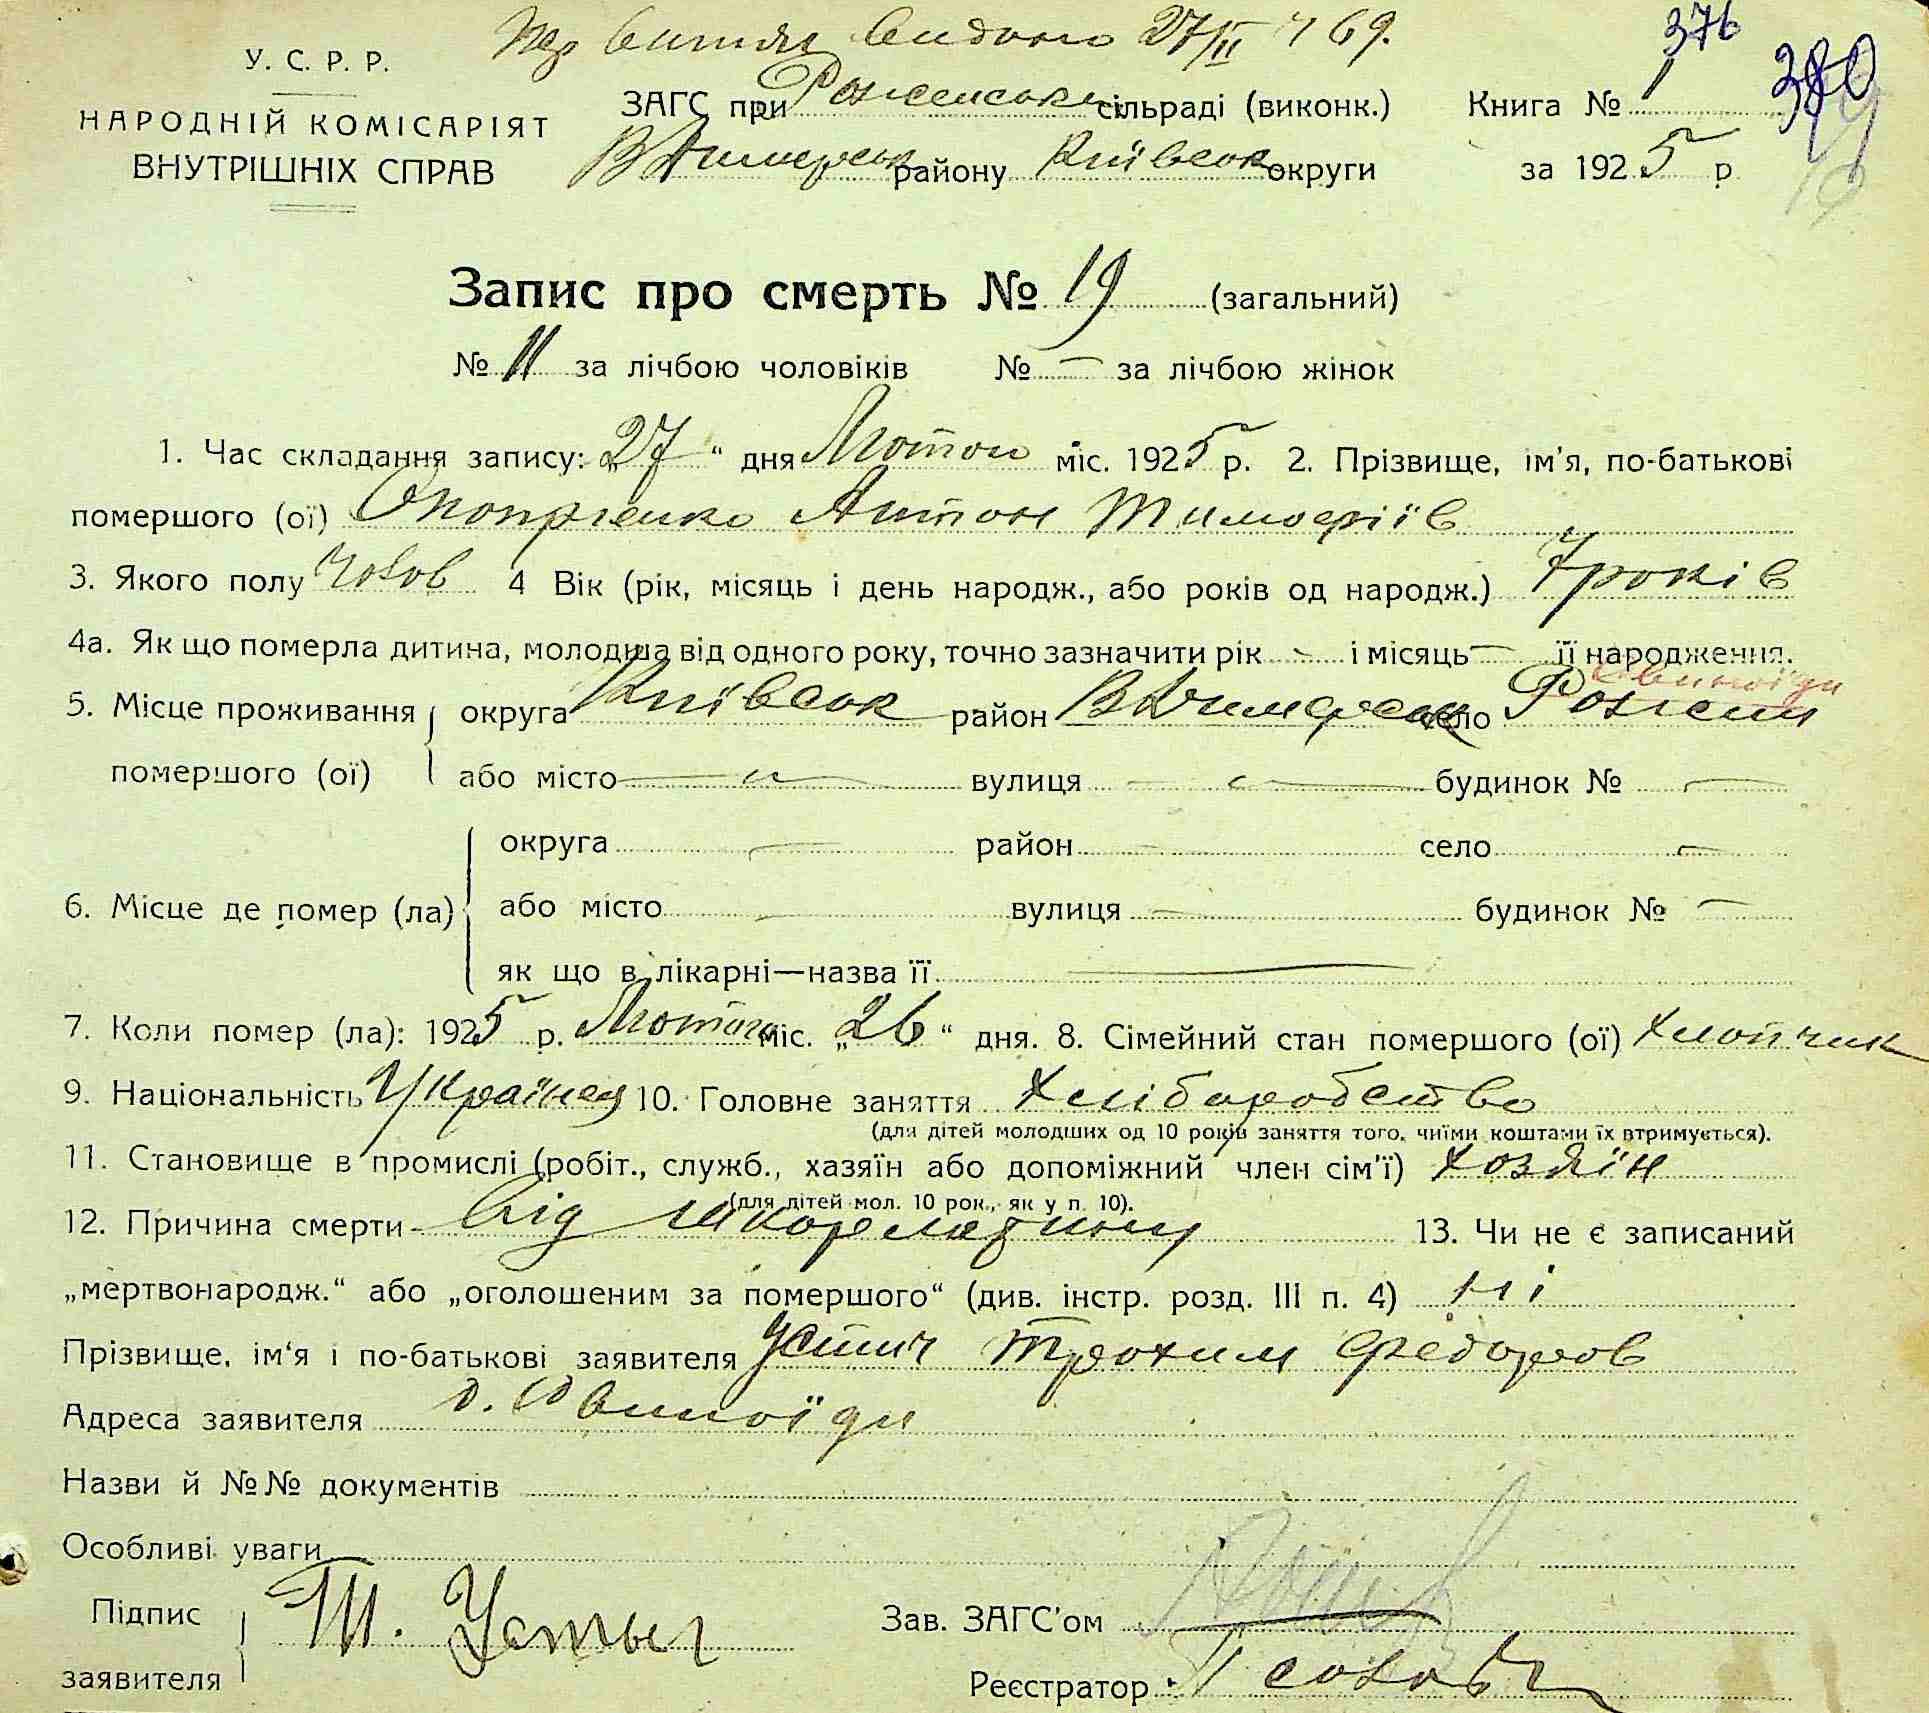 видано 27/II
У. С. Р. Р.
НАРОДНІЙ КОМІСАРІЯТ
ВНУТРІШНІХ СПРАВ
ЗАГС при сільраді (виконк.)
району Київськ округи
376
Книга № 1
380
за 1925 р
Запис про смерть № 19 (загальний)
№ 11 за лічбою чоловіків № — за лічбою жінок
1. Час складання запису: „27“ дня Лютого міс. 1925 р. 2. Прізвище, ім'я, по-батькові
помершого (ої) Онопрієнко Антон Тимофіїв
3. Якого полу Чолов 4 Вік (рік, місяць і день народж., або років од народж.) 7 років
4а. Як що померла дитина, молодша від одного року, точно зазначити рік — і місяць — її народження.
Свиноїди
5. Місце проживання округа Київськ район В Димерськ село Рожени
помершого (ої) або місто — вулиця — будинок № —
округа — район — село —
6. Місце де помер (ла) або місто — вулиця — будинок № —
як що в лікарні—назва її —
7. Коли помер (ла): 1925 р. Лютого міс. „26“ дня. 8. Сімейний стан помершого (ої) хлопчик
9. Національність Українец 10. Головне заняття Хліборобство
(для дітей молодших од 10 років заняття того, чиїми коштами їх втримується).
11. Становище в промислі (робіт., служб., хазяїн або допоміжний член сім'ї) хозяїн
(для дітей мол. 10 рок., як у п. 10).
12. Причина смерти від шкорлятини 13. Чи не є записаний
„мертвонародж.“ або „оголошеним за помершого“ (див. інстр. розд. III п. 4) ні
Прізвище, ім'я і по-батькові заявителя Устич Трохим Федоров
Адреса заявителя с. Свиноїди
Назви й №№ документів
Особливі уваги
Підпис
заявителя Т. Устыч
Зав. ЗАГС'ом
Реєстратор